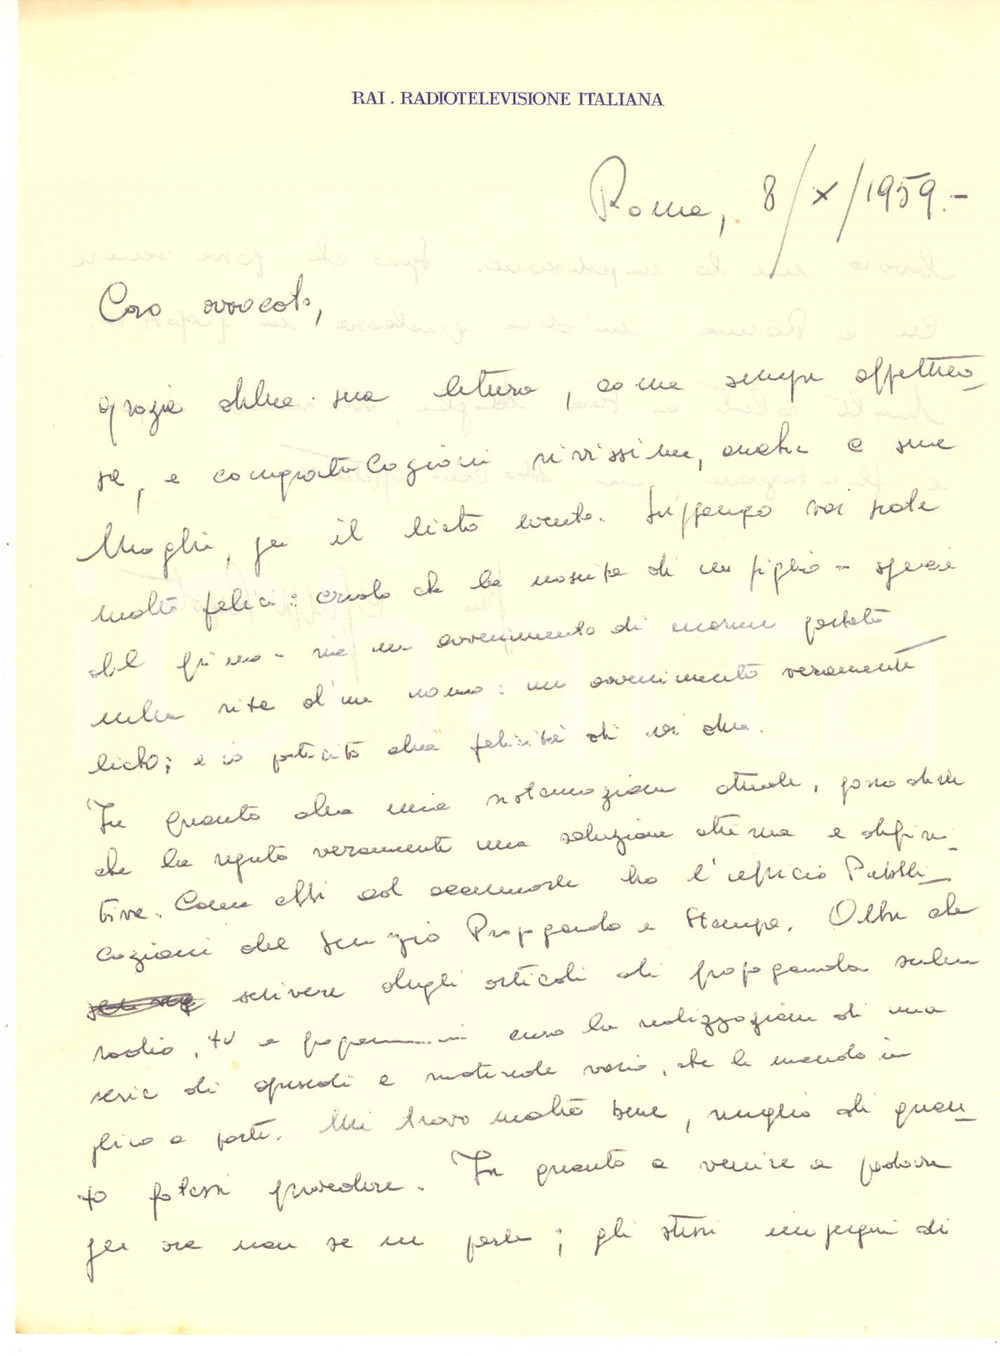 RAI . RADIOTELEVISIONE ITALIANA
Roma, 8/X/1959.-
Caro avvocato,
grazie della sua lettera, come sempre affettuo-
sa, e congratulazioni vivissime, anche a sua
Moglie, per il lieto evento. Suppongo voi siate
molto felici: credo che la nascita di un figlio - specie
del primo - sia un avvenimento di enorme portata
nella vita d'un uomo: un avvenimento veramente
lieto; e io partecipo alla felicità di voi due.
In quanto alla mia sistemazione attuale, posso dirle
che la reputo veramente una soluzione ottima e defini-
tiva. Come ebbi ad accennarle ho l'ufficio Pubbli-
cazioni del Servizio Propaganda e Stampa. Oltre che
scrivere degli articoli di propaganda sulla
radio, tv e programmi curo la realizzazione di una
serie di opuscoli e materiale vario, che le mando in
plico a parte. Mi trovo molto bene, meglio di quan-
to potessi prevedere. In quanto a venire a Padova
per ora non se ne parla; gli stessi impegni di